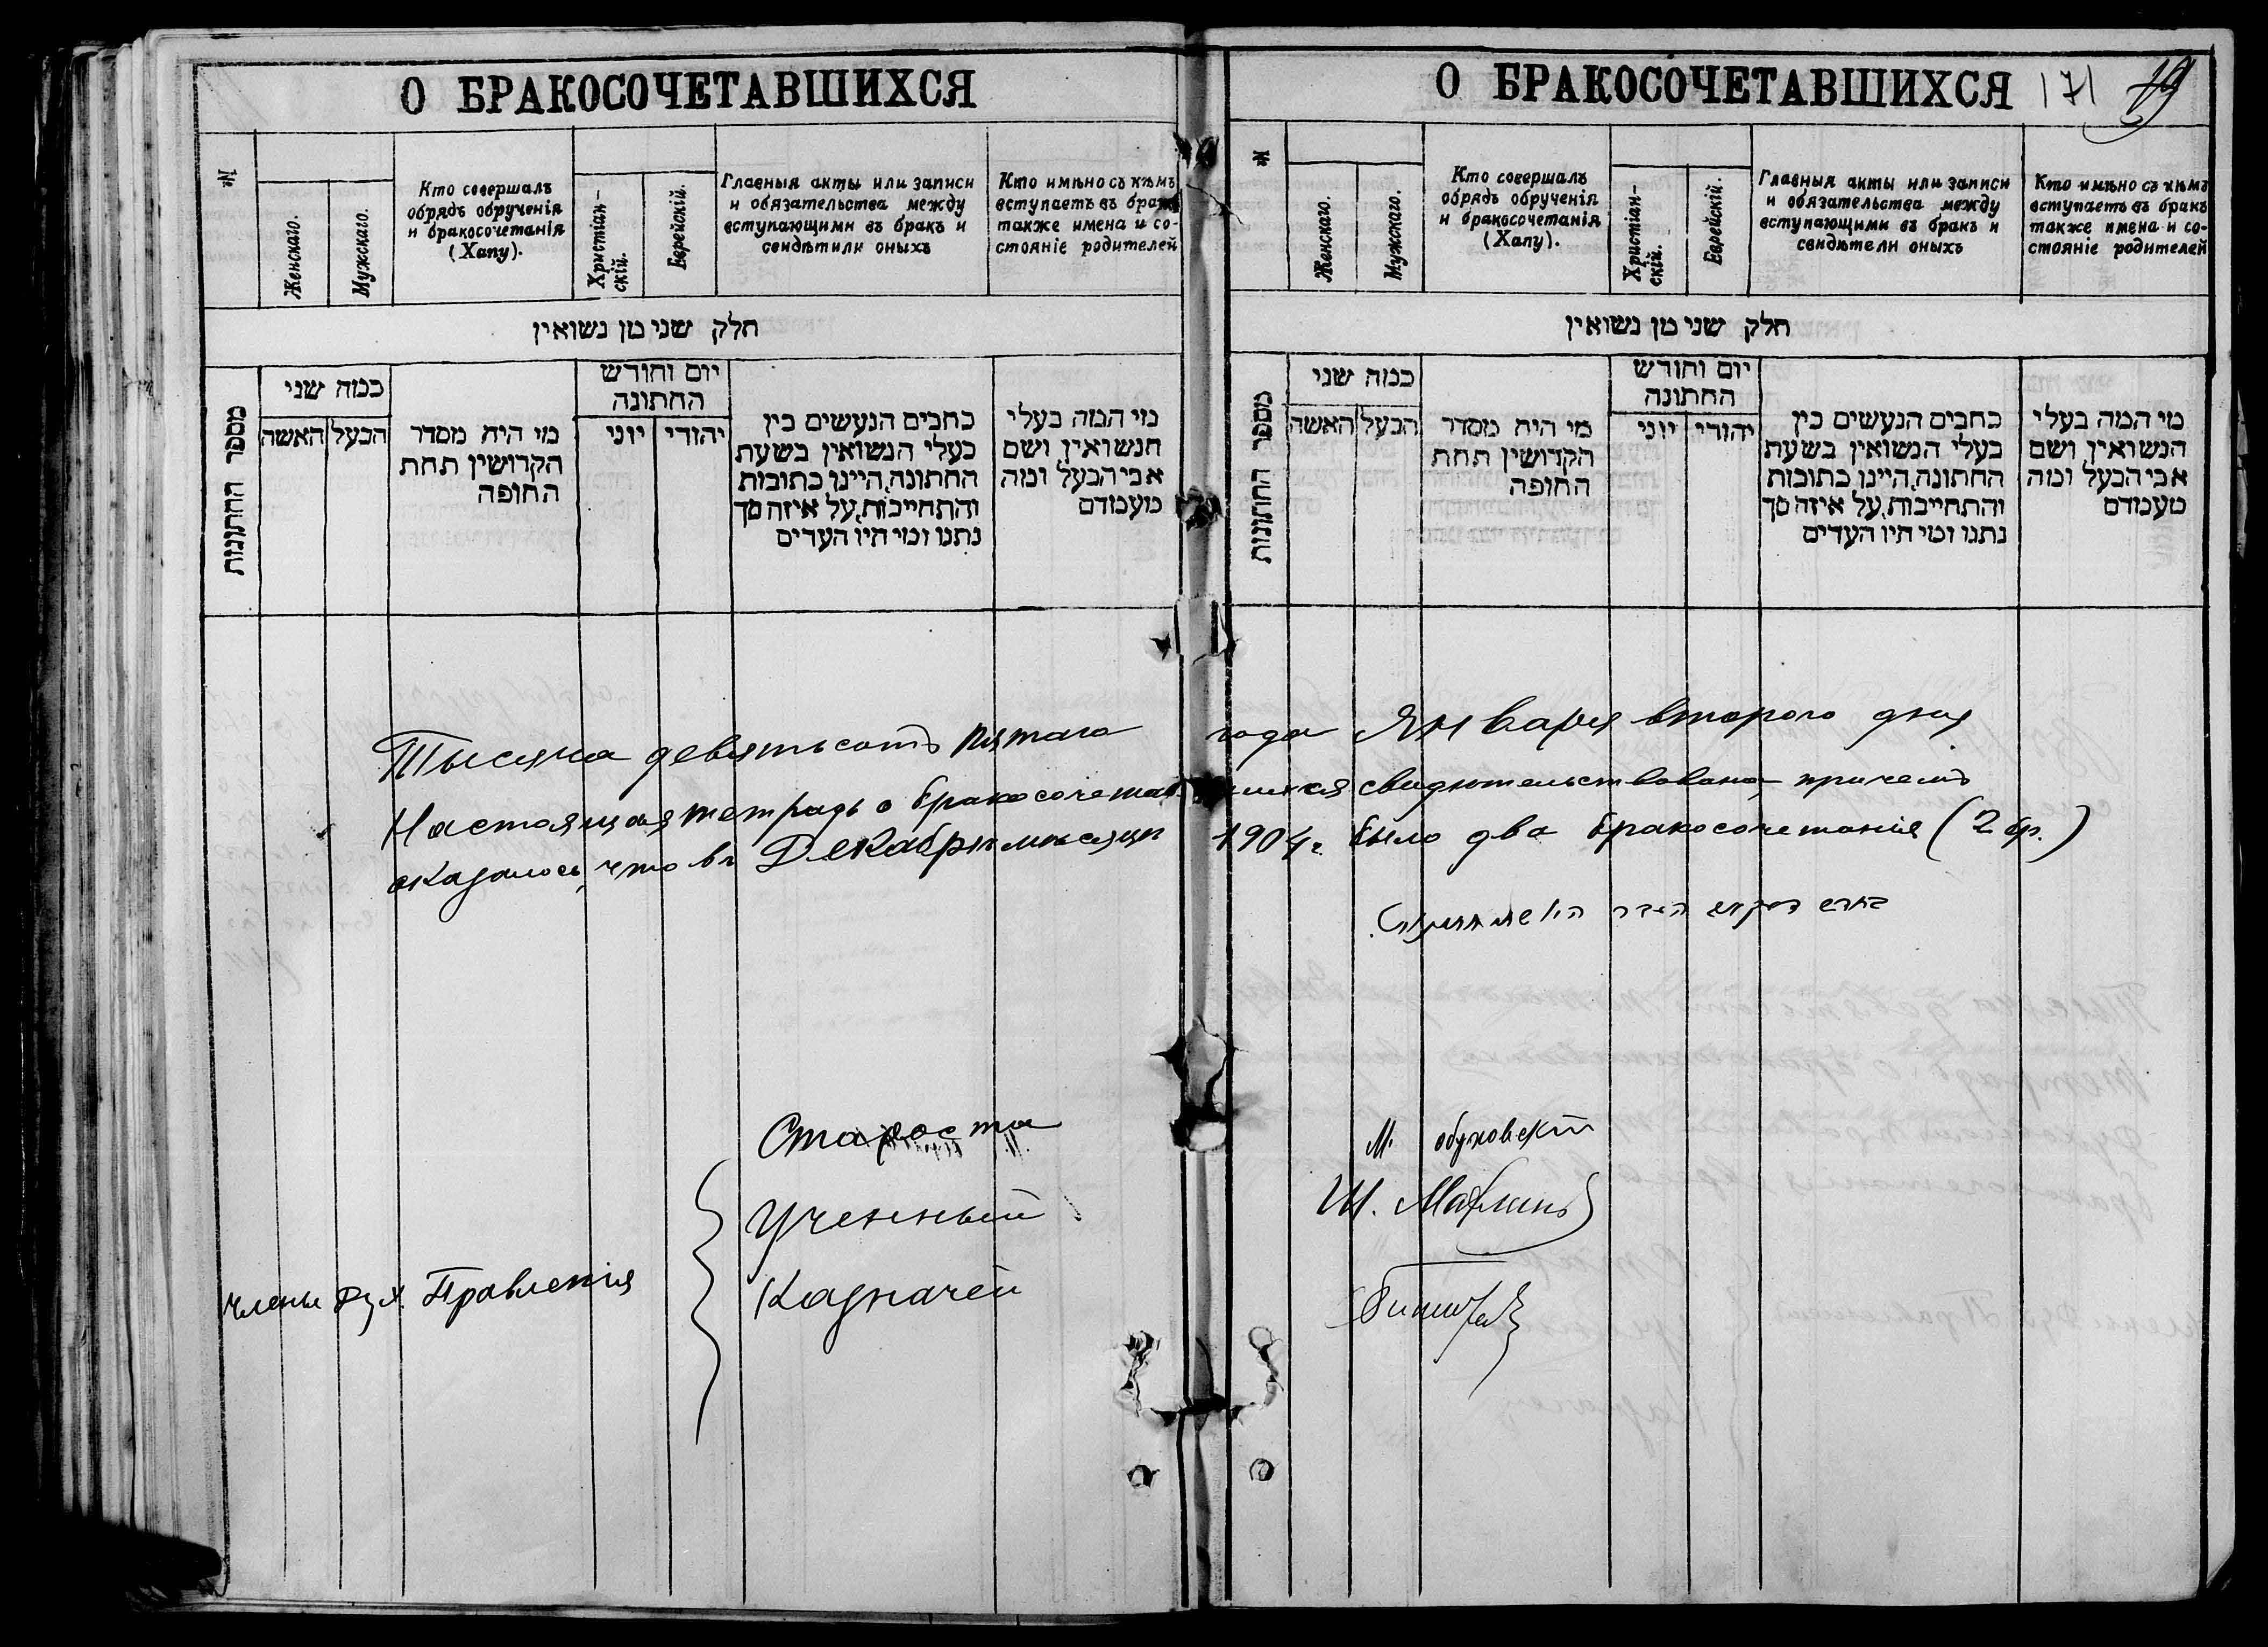 О БРАКОСОЧЕТАВШИХСЯ
№
Женскаго.
Мужскаго.
Кто совершалъ
обрядъ обрученія
и бракосочетанія
(Хапу).
Христіан-
скій.
Еврейскій.
Главныя акты или записи
и обязательства между
вступающими въ бракъ и
свидѣтили оныхъ
Кто имѣно съ кѣмъ
вступаетъ въ бракъ
также имена и со-
стояніе родителей
חלק שני מן נשואין
מספר החתונות
כמה שני
האשה
הבעל
מי היה מסדר
הקדושין תחת
החופה
יום וחודש
החתונה
יוני
יהודי
כתבים הנעשים בין
בעלי הנשואין בשעת
החתונה, היינו כתובות
והתחייבות, על איזה סך
נתנו ומי היו העדים
מי המה בעלי
הנשואין ושם
אבי הבעל ומה
מעמדם
О БРАКОСОЧЕТАВШИХСЯ
171
19
№
Женскаго.
Мужскаго.
Кто совершалъ
обрядъ обрученія
и бракосочетанія
(Хапу).
Христіан-
скій.
Еврейскій.
Главныя акты или записи
и обязательства между
вступающими въ бракъ и
свидѣтели оныхъ
Кто имѣно съ кѣмъ
вступаетъ въ бракъ
также имена и со-
стояніе родителей
חלק שני מן נשואין
מספר החתונות
כמה שני
האשה
הבעל
מי היה מסדר
הקדושין תחת
החופה
יום וחודש
החתונה
יוני
יהודי
כתבים הנעשים בין
בעלי הנשואין בשעת
החתונה, היינו כתובות
והתחייבות, על איזה סך
נתנו ומי היו העדים
מי המה בעלי
הנשואין ושם
אבי הבעל ומה
מעמדם
Тысяча девятьсотъ пятаго года Января второго дня
Настоящая тетрадь о бракосочетавшихся свидѣтельствована, причемъ
оказалось, что въ Декабрѣ мѣсяцѣ 1904 г. было два бракосочетанія (2 бр.)
Староста М. Обуховскій
Ученный Ш.
Члены Дух. Правленія
Казначей